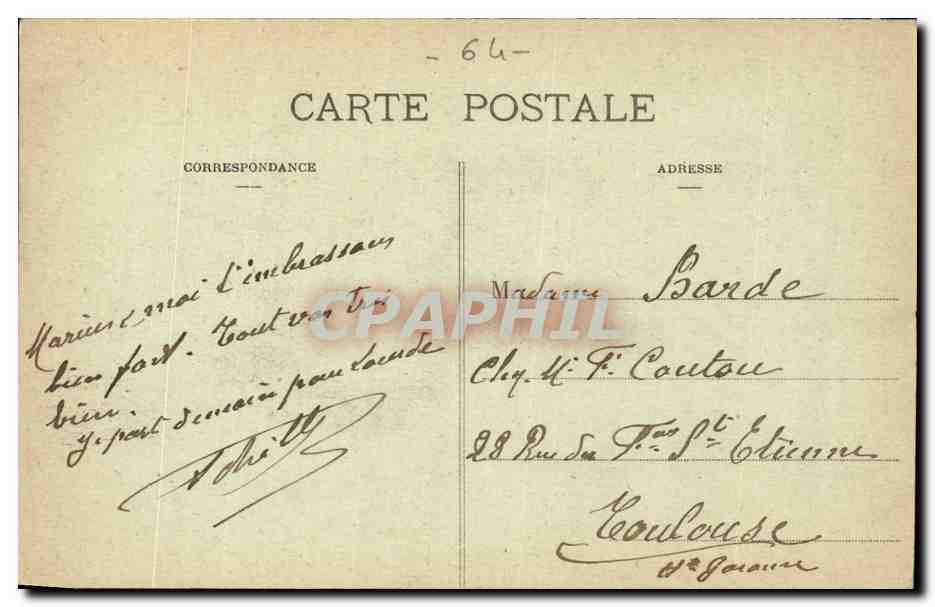 - 64 -
CARTE POSTALE
CORRESPONDANCE
ADRESSE
Marius e moi t'embrassons
bien fort. Tout vas très
bien.
Je part demain pour Lourde
Madame Barde
Chez Mr F. Coutou
22 Rue du Fas St Etienne
Toulouse
Hte Garonne
CPAPHIL